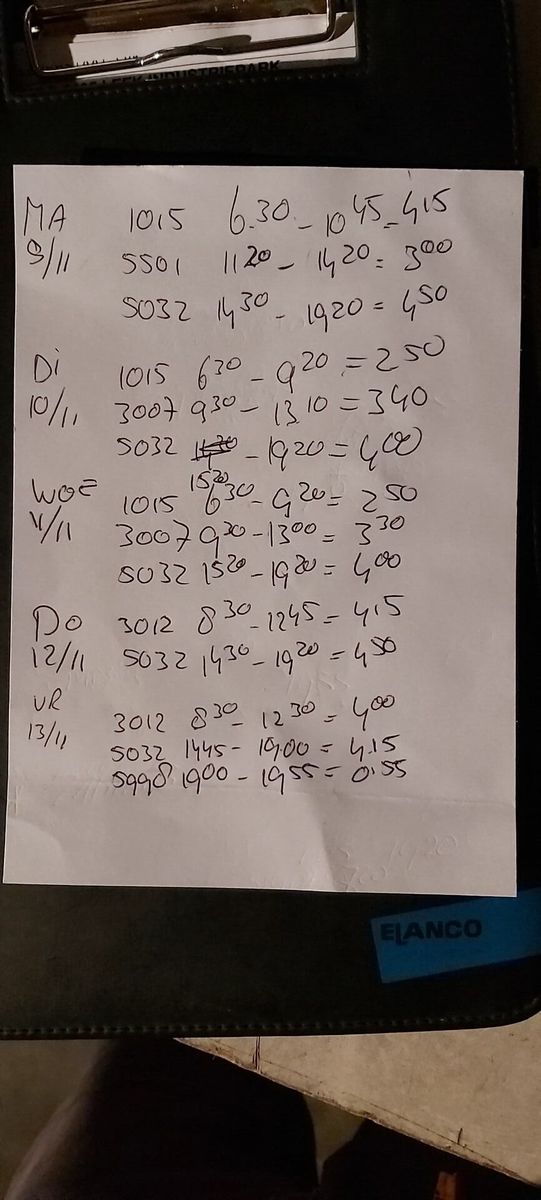 INDUSTRIEPARK
MA 1015 6.30 - 10 45 = 4.15
9/11 5501 11 20 - 14 20 = 3 00
5032 14 30 - 19 20 = 4 50
Di 1015 6 30 - 9 20 = 2 50
10/11 3007 9 30 - 13 10 = 3 40
5032 - 19 20 = 4 00
15 20
WOE 1015 6 30 - 9 20 = 2 50
11/11 3007 9 30 - 13 00 = 3 30
5032 15 20 - 19 20 = 4 00
DO 3012 8 30 - 12 45 = 4.15
12/11 5032 14 30 - 19 20 = 4 50
VR 3012 8 30 - 12 30 = 4 00
13/11 5032 1445 - 19.00 = 4.15
5998 19 00 - 19 55 = 0.55
ELANCO